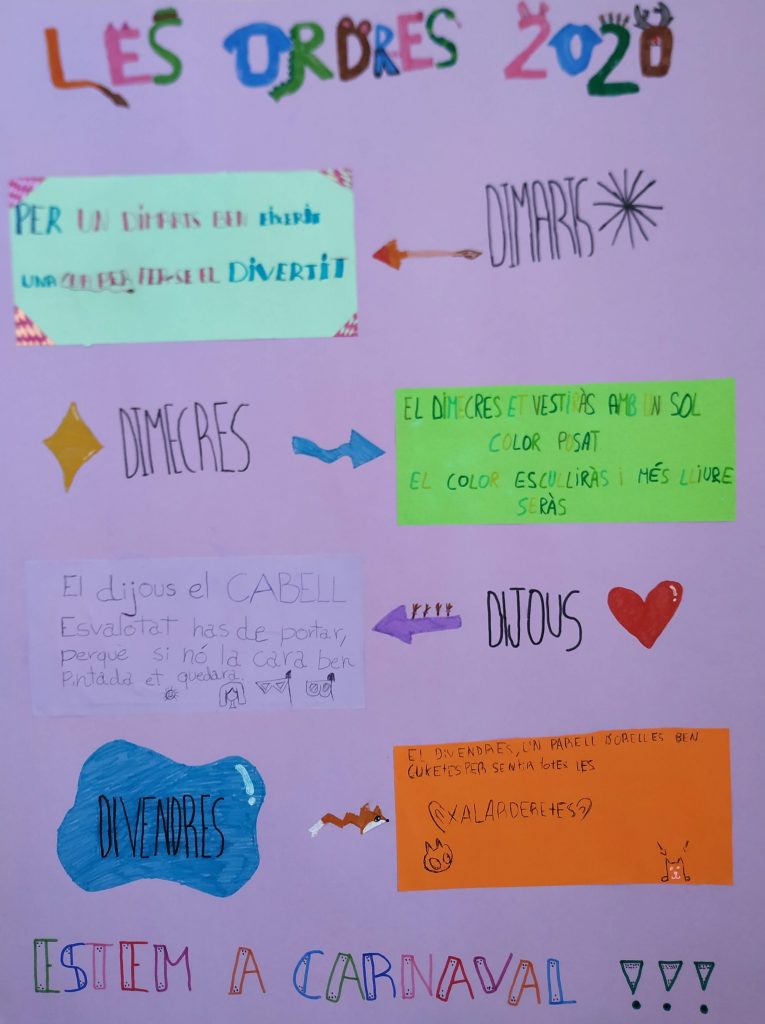 LES ORDRES 2020
DIMARTS
PER UN DIMARTS BEN DIVERTIT
UNA CUA PER FER-SE EL DIVERTIT
DIMECRES
EL DIMECRES ET VESTIRÀS AMB UN SOL
COLOR POSAT
EL COLOR ESCULLIRÀS I MÉS LLIURE
SERÀS
DIJOUS
El dijous el CABELL
Esvalotat has de portar,
perquè si nó la cara ben
Pintada et quedara.
DIVENDRES
EL DIVENDRES, UN PARELL D'ORELLES BEN
CUKETES PER SENTIR totes LES
XALARDERETES
ESTEM A CARNAVAL !!!